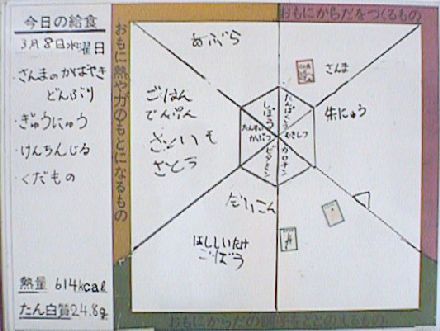 今日の給食
3月8日水曜日
・さんまのかばやき
どんぶり
・ぎゅうにゅう
・けんちんじる
・くだもの
熱量 614kcal
たん白質24.8g
おもに熱や力のもとになるもの
おもにからだをつくるもの
あぶら
ごはん
でんぷん
さといも
さとう
さんま
牛にゅう
しぼう
たんぱくしつ
むきしつ
カロチン
だいこん
ほししいたけ
ごぼう